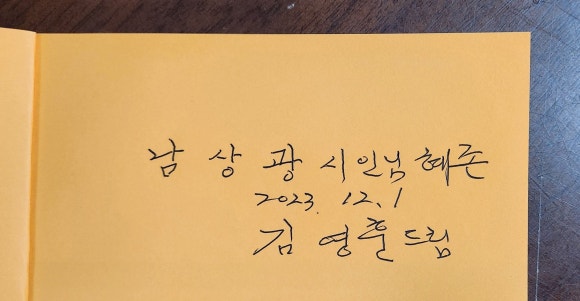 남상광 시인님 혜존
2023. 12. 1
김영훈 드림